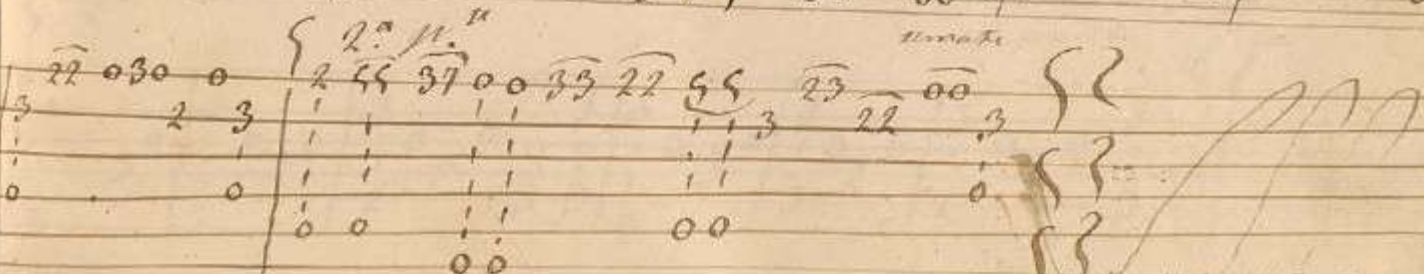 2.ª p.te
22 030 0 2 55 37 0 0 33 22 55 23 00
3 2 3 3 22 3
0 0 0
0 0 0 0
0 0